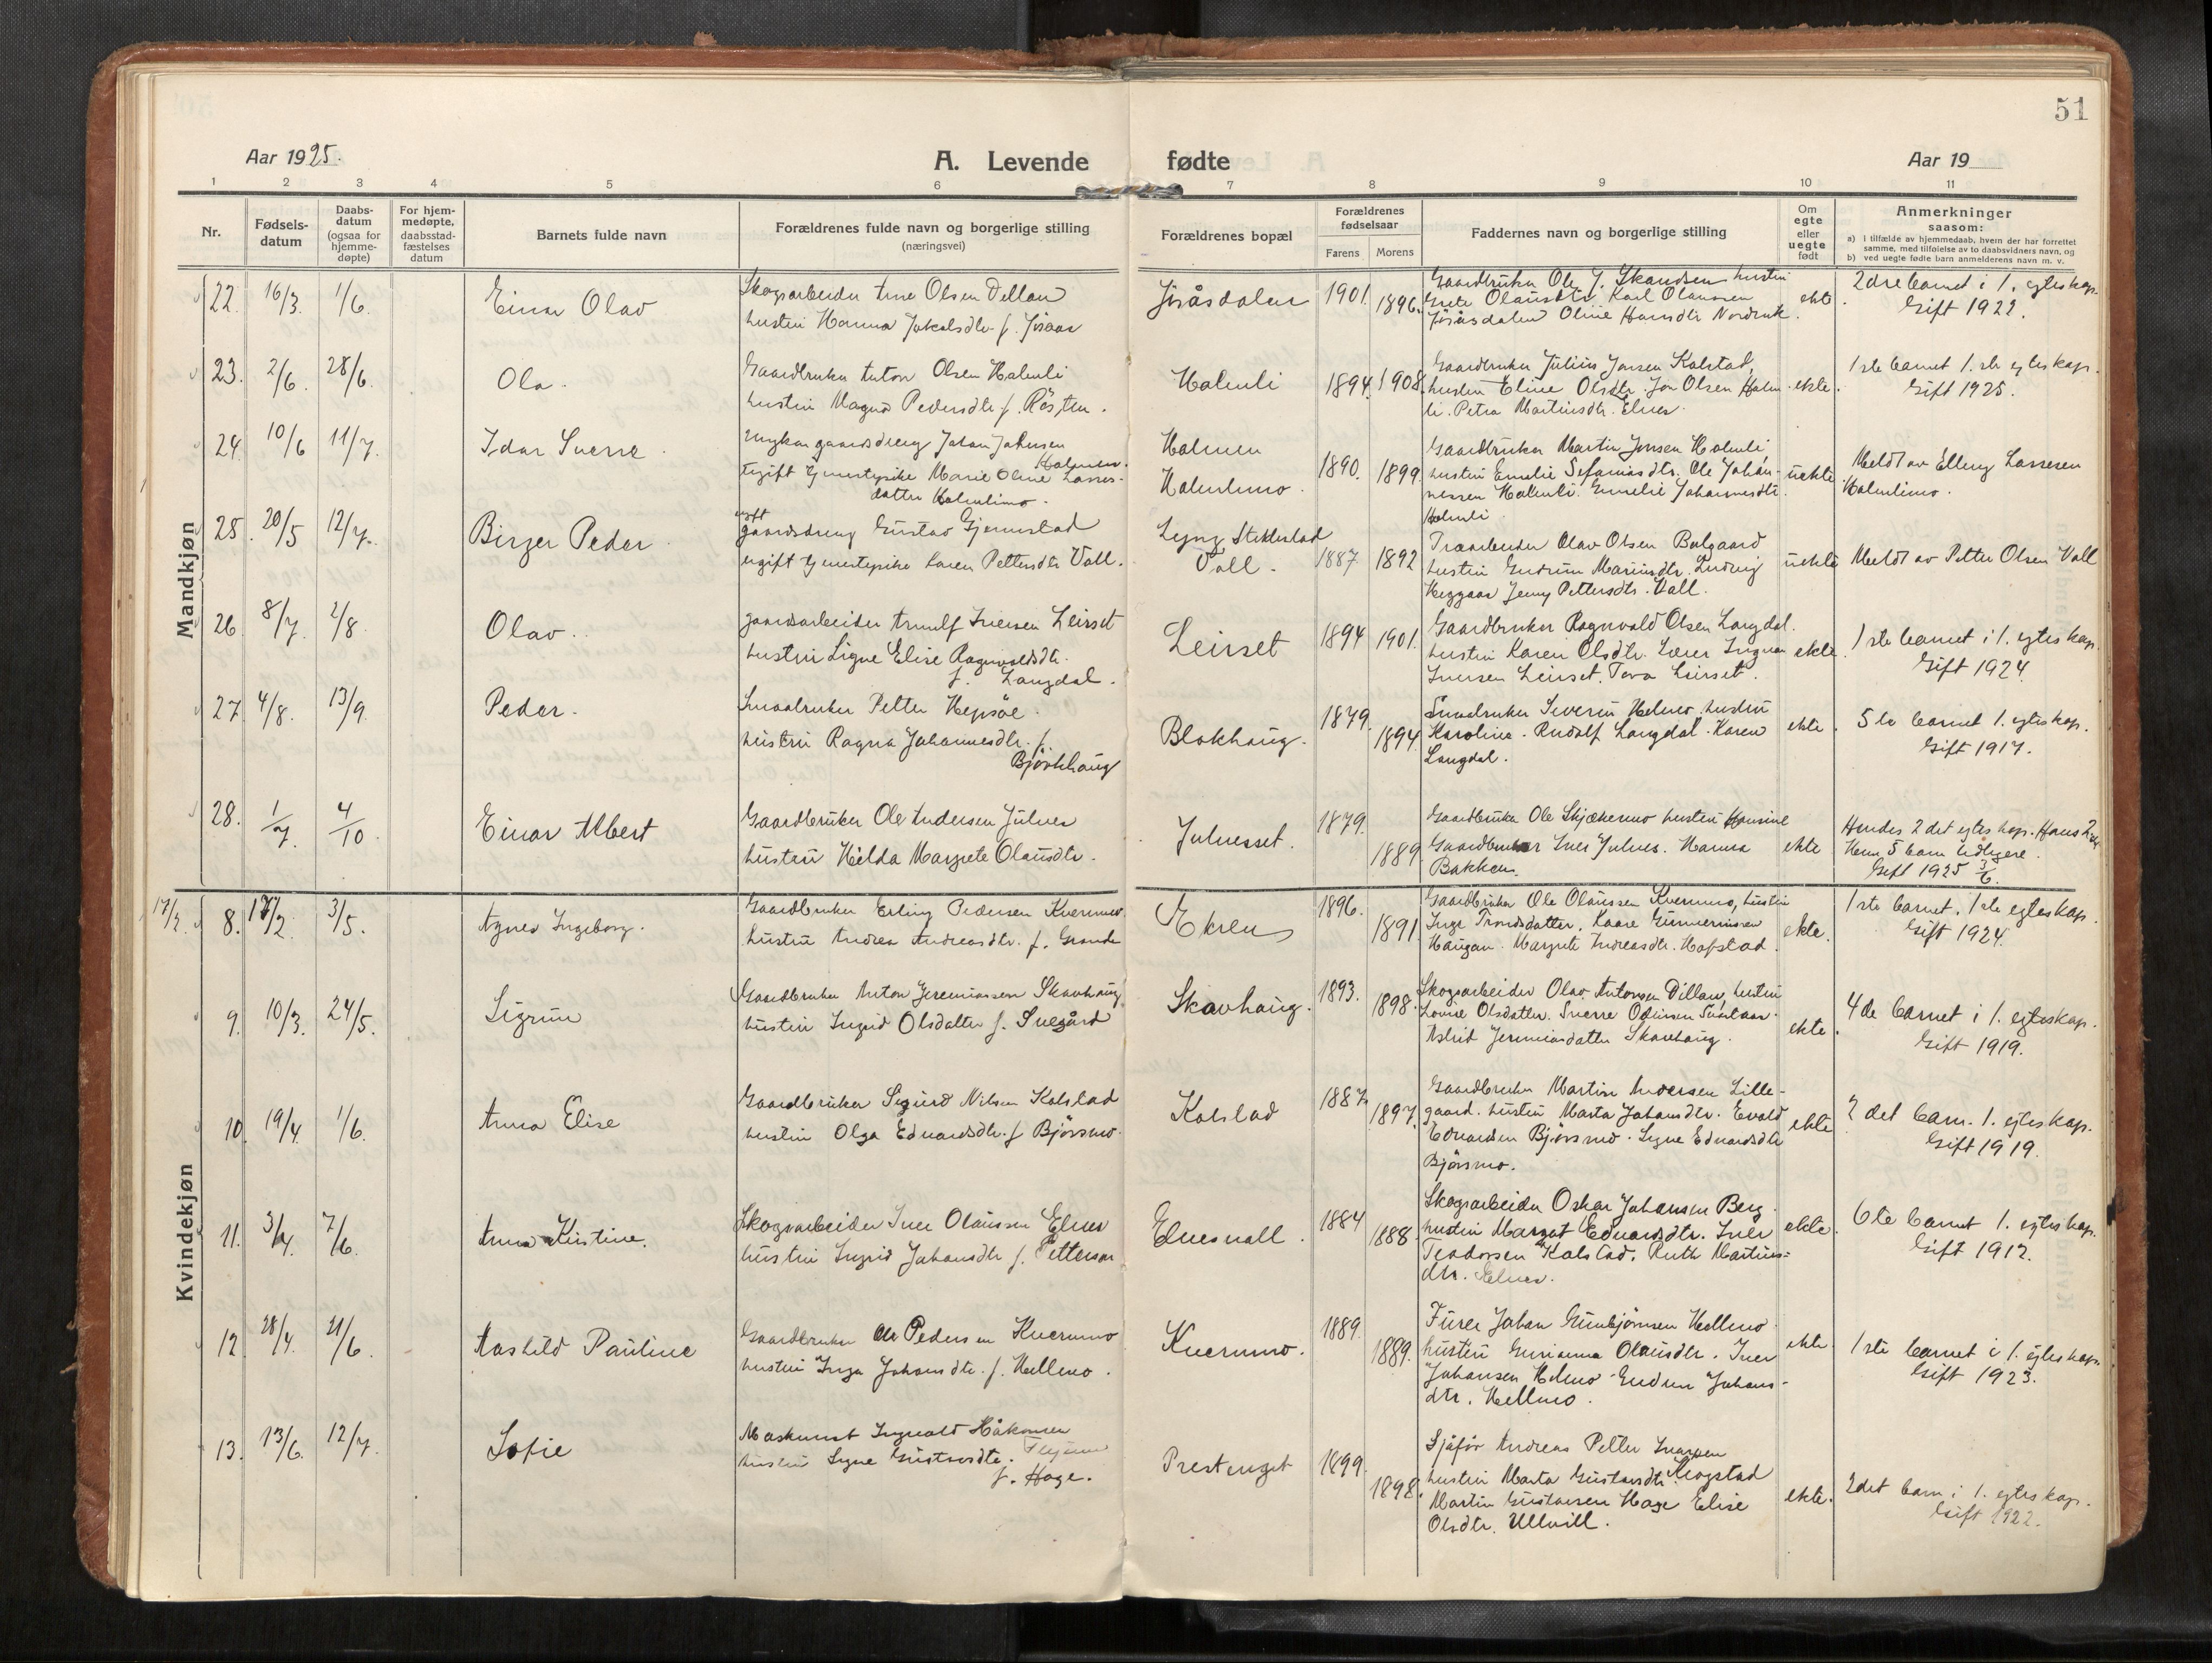 51
Aar 1925.
A. Levende fødte
Aar 19
1 2 3 4 5 6 7 8 9 10 11
Nr.
Fødsels-
datum
Daabs-
datum
(ogsaa for
hjemme-
døpte)
For hjem-
medøpte,
daabsstad-
fæstelses
datum
Barnets fulde navn
Forældrenes fulde navn og borgerlige stilling
(næringsvei)
Forældrenes bopæl
Forældrenes
fødselsaar
Farens Morens
Faddernes navn og borgerlige stilling
Om
egte
eller
uegte
født
Anmerkninger
saasom:
a) i tilfælde av hjemmedaab, hvem der har forrettet
samme, med tilføielse av to daabsvidners navn, og
b) ved uegte fødte barn anmelderens navn m. v.
Mandkjøn
22. 16/3. 1/6. Einar Olav
Skogsarbeider Arne Olsen Dellan
hustru Hanna Jakobsdtr. f. Jösaas
Jösåsdalen 1901. 1896.
Gaardbruker Ole J. Skandsen hustru
Grete Olausdtr. Karl Olaussen
Jösåsdalen Oline Hansdtr
ekte.
2dre barnet i 1. egteskap.
Gift 1922.
23. 2/6. 28/6. Ola.
Gaardbruker Anton Olsen Halmli
hustru Magna Pedersdtr f.
Halmli 1894. 1908.
Gaardbruker Julius Jensen Kolstad,
hustru Eline Olsdtr. Jon Olsen Halm-
li. Petra Martinsdtr. Elnes.
ekte.
1ste barnet 1.ste egteskap.
Gift 1925.
24. 10/6 11/7. Idar Sverre.
Ungkar gaardsdreng Johan Johnsen
Holmen.
ugift tjenestepike Marie Oline Lasses-
datter Halmlimo.
Holmen
Halmlimo. 1890. 1899.
Gaardbruker Martin Jensen Halmli,
hustru Emelie Sefaniasdtr. Ole Johan-
nessen Halmli. Emelie Johannesdtr.
Halmli
uekte.
Meldt av Elling Lassesen
Halmlimo.
25. 20/5 12/7. Birger Peder
ugift
gaardsdreng Gustav Gjermstad
ugift tjenestepike Karen Pettersdtr Voll.
Lyng Stiklestad
Voll. 1887 1892
Træarbeider Olav Olsen Balgaard
hustru Gudrun Mariusdtr. Ludvig
Heggaas Jenny Pettersdtr. Voll.
uekte
Meldt av Petter Olsen Voll
26. 8/7. 2/8. Olav.
gaardsarbeider Arnulf Iversen Leirset
hustru Signe Elise Ragnvaldsdtr.
f. Langdal.
Leirset 1894 1901.
Gaardbruker Ragnvald Olsen Langdal.
hustru Karen Olsdtr. Lærer Ingvar
Iversen Leirset. Tora Leirset.
ekte.
1ste barnet i 1. egteskap.
Gift 1924.
27. 4/8. 13/9. Peder.
Smaabruker Petter Hepsöe.
hustru Ragna Johannesdtr. f.
Björkhaug
Blokhaug. 1879. 1894.
Smaabruker Severin Helmo hustru
Karoline. Rudolf Langdal. Karen
Langdal.
ekte.
5te barnet 1. egteskap.
Gift 1917.
28. 1/7. 4/10. Einar Albert
Gaardbruker Ole Andersen Julnes
hustru Hilda Margrete Olausdtr.
Julnesset. 1879. 1889
Gaardbruker Ole Skjækermo hustru Hansine
Gaardbruker Iver Julnes. Hanna
Bakken.
ekte
Hendes 2det egteskap. Hans 2det
Henn 5 barn tidligere.
Gift 1925 3/6.
Kvindekjøn
17/2. 8. 17/2. 3/5. Agnes Ingeborg.
Gaardbruker Erling Pedersen Kvermmo.
hustru Andrea Andreasdtr. f. Grande
Ekren 1896. 1891.
Gaardbruker Ole Olaussen Kvermmo, hustru
Inga Trondsdatter. Kaare
Haugan. Margrete Andreasdtr. Hofstad.
ekte.
1ste barnet. 1ste egteskap.
Gift 1924.
9. 10/3. 24/5. Sigrun
Gaardbruker Anton Jeremiassen Skavhaug
hustru Ingrid Olsdatter f. Svegård
Skavhaug. 1893. 1898.
Skogsarbeider Olav Antonsen Dillan, hustru
Lovise Olsdatter. Sverre Odinsen
Astrid Jeremiasdatter Skavhaug.
ekte.
4de barnet i 1. egteskap.
Gift 1919.
10. 19/4. 1/6. Anna Elise
Gaardbruker Sigurd Nilsen Kolstad
hustru Olga Edvardsdtr. f. Björsmo.
Kolstad 1887. 1897.
Gaardbruker Martin Andersen Lille-
gaard. hustru Marta Johansdtr. Evald
Edvardsen Björsmo. Signe Edvardsdtr
Björsmo.
ekte
2det barn. 1. egteskap.
Gift 1919.
11. 3/4. 7/6. Anna Kristine.
Skogsarbeider Iver Olaussen Elnes
hustru Ingrid Johansdtr f. Petterson
Elnesvall. 1884 1888.
Skogsarbeider Oskar Johansen Berg
hustru Margot Edvardsdtr. Iver
Teodorsen Kolstad. Ruth Martins-
dtr. Elnes.
ekte.
6te barnet 1. egteskap.
Gift 1912.
12. 28/4. 21/6. Aashild Pauline
Gaardbruker Ole Pedersen Kvermmo
hustru Inga Johansdtr. f. Hellmo.
Kvermmo. 1889. 1889.
Furer Johan Gunbjørnsen Hellmo
hustru Gurianna Olausdtr. Iver
Johansen Helmo. Gudrun Johans-
dtr. Hellmo.
ekte.
1ste barnet i 1. egteskap.
Gift 1923.
13. 13/6. 12/7. Sofie
Maskinist Ingvald Håkonsen
hustru Signe Gustavsdtr.
f. Hage.
Prestenget 1899. 1898.
Sjåför Andreas Petter
hustru Marta Gustavsdtr. Kragstad
Martin Gustavsen Hage Elise
Olsdtr. Ullvill.
ekte.
2det barn i 1. egteskap.
Gift 1922.